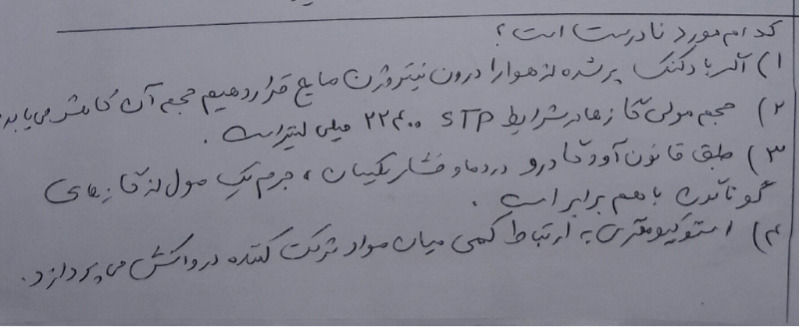 کدام مورد نادرست است؟
۱) اگر بادکنک پرشده از هوا را درون نیتروژن مایع قرار دهیم حجم آن کاهش می‌یابد
۲) حجم مولی گازها در شرایط STP ۲۲۴۰۰ میلی لیتر است.
۳) طبق قانون آووگادرو در دما و فشار یکسان، جرم یک مول از گازهای
گوناگون با هم برابر است.
۴) استوکیومتری به ارتباط کمی میان مواد شرکت کننده در واکنش می پردازد.